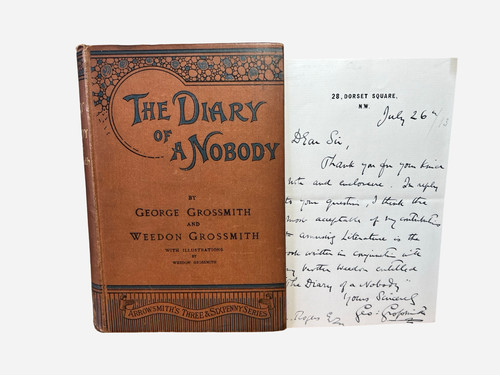 THE DIARY
OF
A NOBODY
BY
GEORGE GROSSMITH
AND
WEEDON GROSSMITH
WITH ILLUSTRATIONS
BY
WEEDON GROSSMITH
ARROWSMITH'S THREE & SIXPENNY SERIES
28, DORSET SQUARE,
N.W.
July 26
Dear Sir,
Thank you for your kind
and enclosure. In reply
your question, I think the
most acceptable of my contributions
to amusing Literature is the
book written in conjunction with
my brother Weedon entitled
"The Diary of a Nobody"
Yours Sincerely
Geo: Grossmith
Rogers Esq